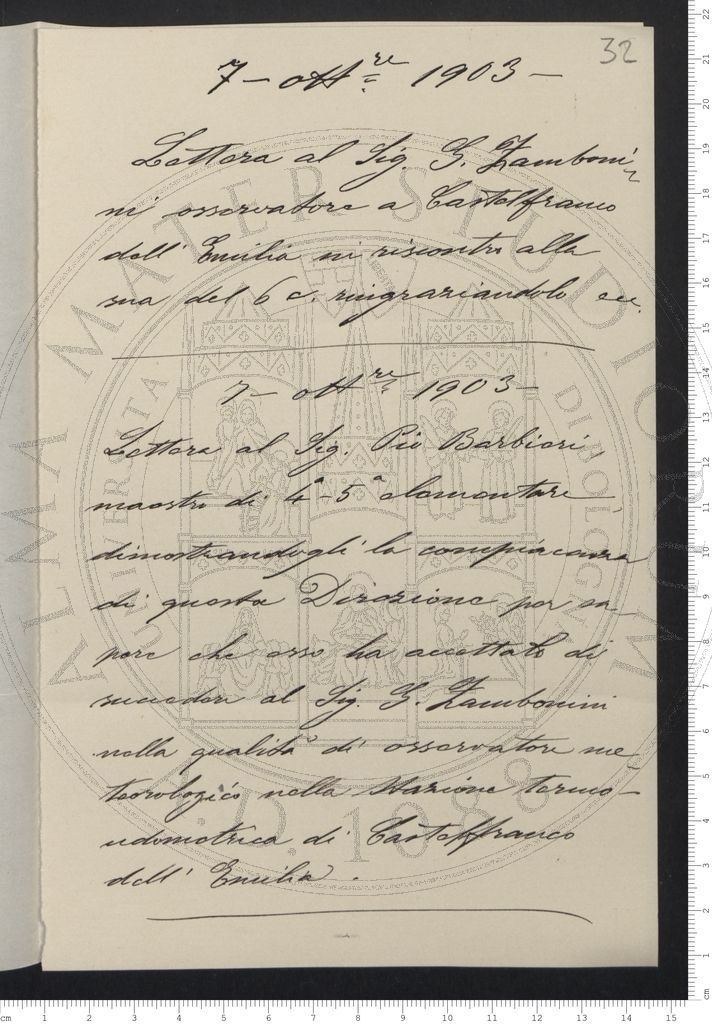 32
7 - ott.re 1903 -
Lettera al Sig. G. Zamboni-
ni osservatore a Castelfranco
dell' Emilia in riscontro alla
sua del 6 c. ringraziandolo ecc.
7 - ott.re 1903 -
Lettera al Sig. Pio Barbieri,
maestro di 4a - 5a elementare,
dimostrandogli la compiacenza
di questa Direzione per sa-
pere che esso ha accettato di
succedere al Sig. G. Zambonini
nella qualità di osservatore me-
teorologico nella stazione termo-
udometrica di Castelfranco
dell' Emilia.
ALMA MATER STUDIORUM
UNIVERSITA DI BOLOGNA
A.D. 1088